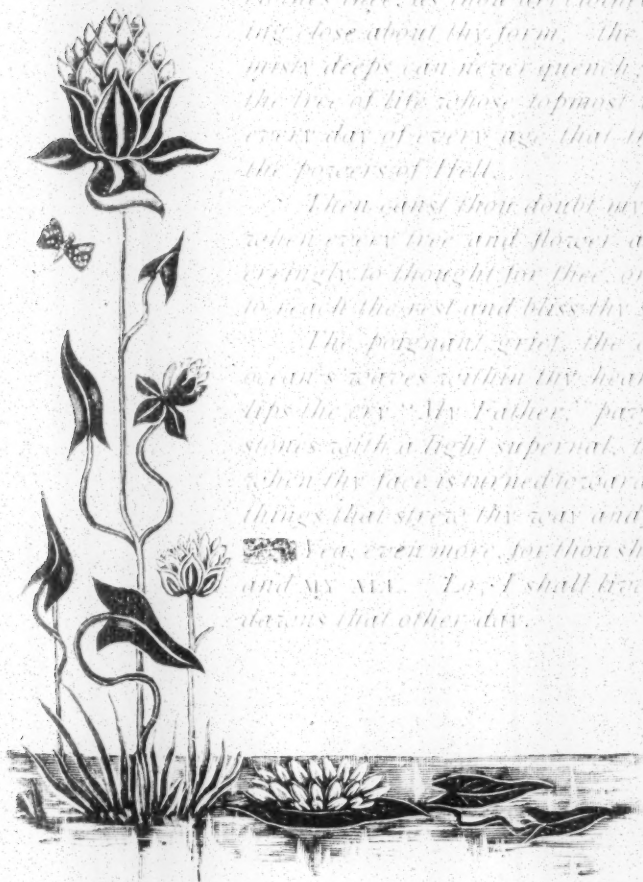 ing close about thy form, the
misty deeps can never quench
the tree of life whose topmost
every day of every age that
the powers of Hell.
Then canst thou doubt my
when every tree and flower a
erringly to thought for thee, or
to reach the rest and bliss thy
The poignant grief, the
ocean's waves within thy hear
lips the cry "My Father," pa
stones with a light supernal,
when thy face is turned toward
things that strew thy way and
Yea, even more, for thou sh
and MY ALL. Lo, I shall live
dawns that other day.